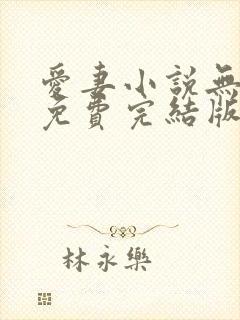 愛妻小說無
免費完結版
林永樂